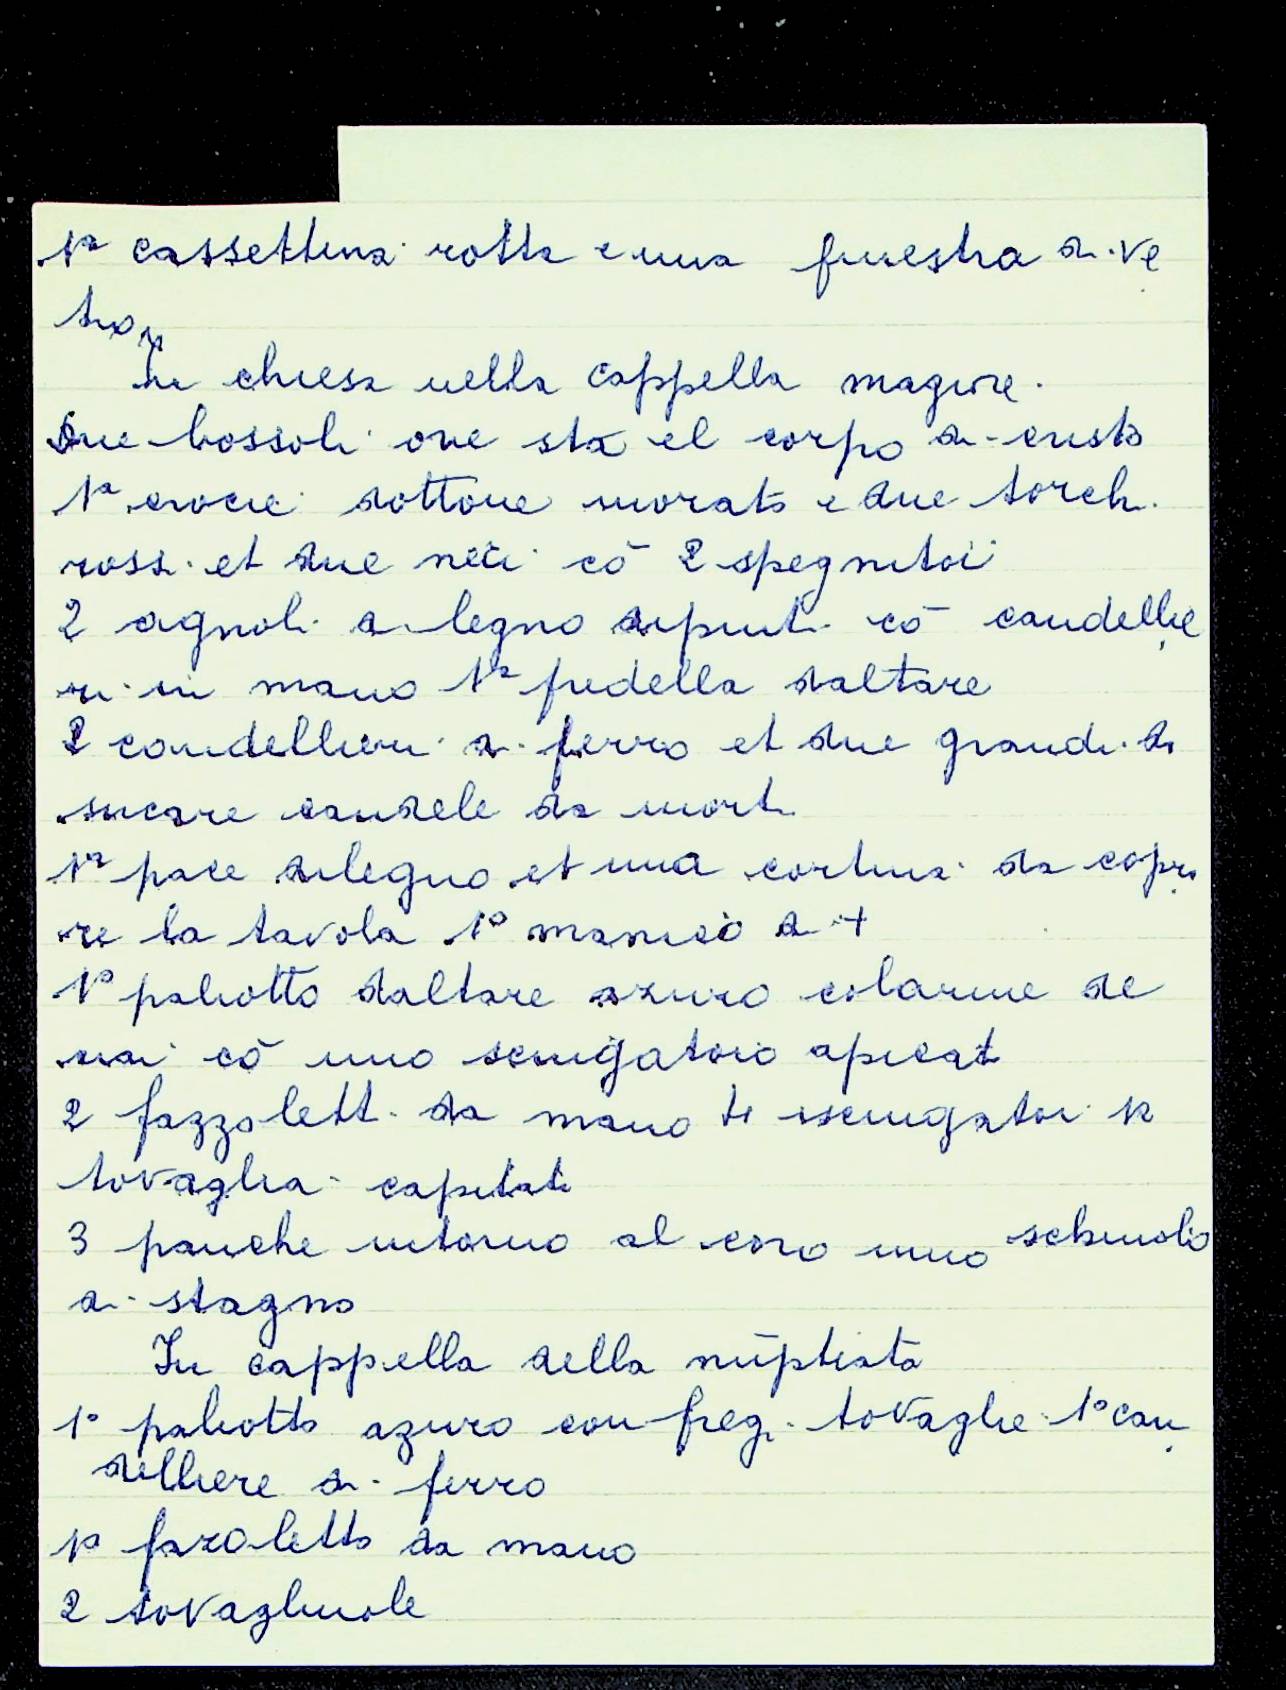 1ª cassettina rotta e una finestra di ve
tro
In chiesa nella cappella magiore.
due bossoli ove sta el corpo di cristo
1ª crocie dottone inorato e due torchi
rossi et due neri cō 2 spegnitoi
2 agnoli di legno dipinti cō candellie
ri in mano 1ª predella daltare
2 candellieri di ferro et due grandi di
ficare candele da morti
1ª pace di legno et una cortina da copri
re la tavola 1º manico di +
1º paliotto daltare azuro colarme de
cō uno sciugatoio apicato
2 fazzoletti da mano sciugatoi 1ª
tovaglia capitati
3 panche intorno al coro uno
di stagno
In cappella della nūptiata
1º paliotto azuro con fregi tovaglie 1º can
delliere di ferro
1º fazoletto da mano
2 tovagliuole